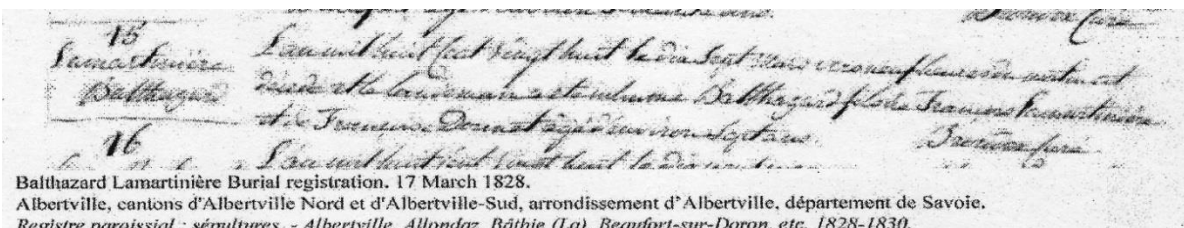 15
Lamartinière
Balthazard
L'an mil huit cent vingt huit le dix sept mars vers neuf heures du matin est
décédé et le lendemain a été inhumé Balthazard fils de François Lamartinière
et de Françoise Donnat âgé d'environ sept ans.
curé
16
L'an mil huit cent vingt huit le dix
Balthazard Lamartinière Burial registration. 17 March 1828.
Albertville, cantons d'Albertville Nord et d'Albertville-Sud, arrondissement d'Albertville, département de Savoie.
Registre paroissial : sépultures. - Albertville, Allondaz, Bâthie (La), Beaufort-sur-Doron, etc. 1828-1830.